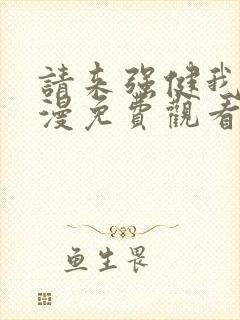 請來強健我
漫免費觀看
鱼生畏